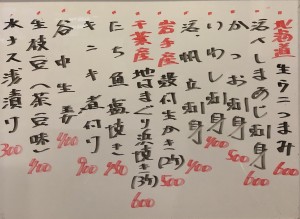 北海道 生タコつまみ 600
活〆しまあじ刺身 600
かつお刺身 500
いわし刺身 400
活帆立刺身
岩手産 殻付生かき(2ケ) 500
千葉産 地はまぐり浜焼き(3ケ) 600
にち魚塩焼き
キンキ煮付け 900
谷中生姜 400
生枝豆(茶豆味) 400
水ナス浅漬け 300